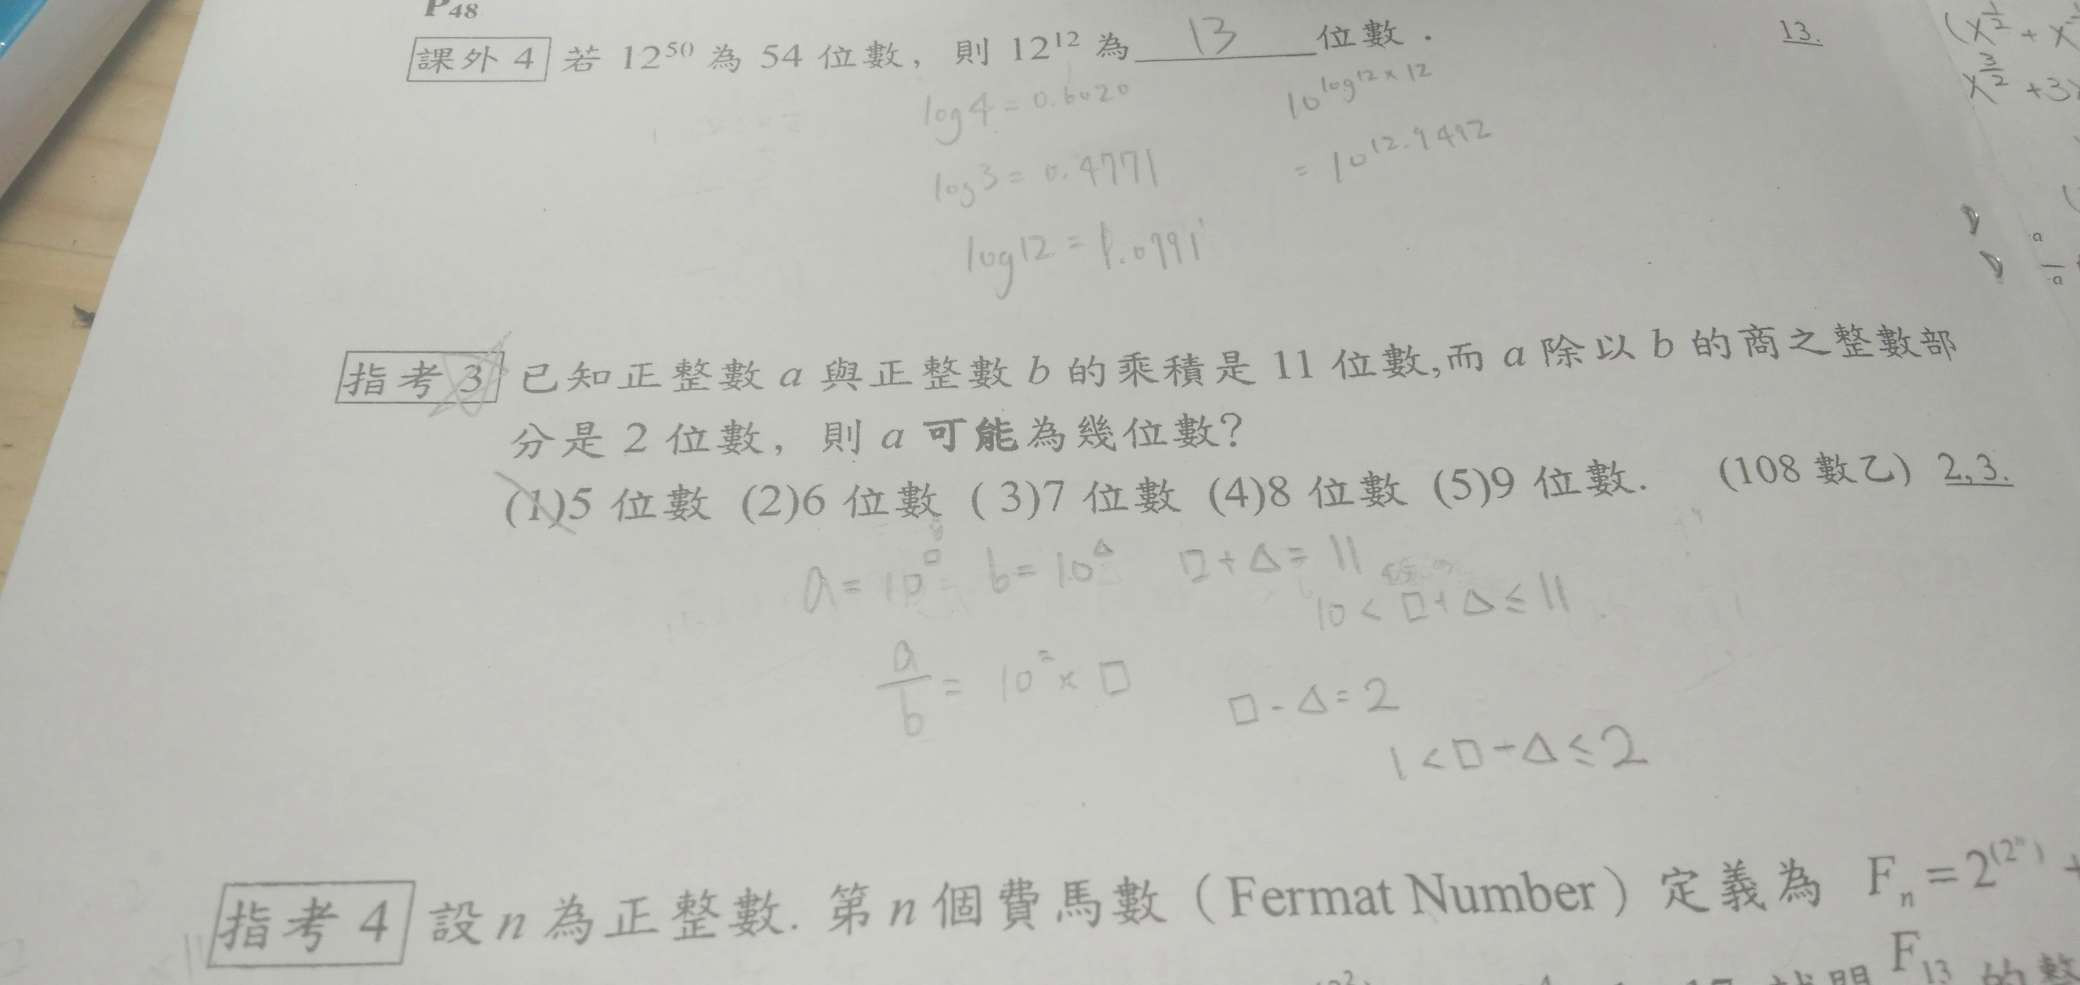 P48
課外 4 若 12⁵⁰ 為 54 位數，則 12¹² 為 13 位數． 13.
(x^{1/2} + x
x^{3/2} + 3
log4 = 0.6020
10^{log12×12}
log3 = 0.4771
= 10^{12.9492}
log12 = 1.0791
指考 3 已知正整數 a 與正整數 b 的乘積是 11 位數,而 a 除以 b 的商之整數部
分是 2 位數，則 a 可能為幾位數?
(1)5 位數 (2)6 位數 (3)7 位數 (4)8 位數 (5)9 位數. (108 數乙) 2,3.
a = 10^□ b = 10^△ □ + △ = 11
10 < □ + △ ≤ 11
a/b = 10² × □
□ - △ = 2
1 < □ - △ ≤ 2
指考 4 設 n 為正整數. 第 n 個費馬數（Fermat Number）定義為 Fₙ = 2^(2ⁿ) +
F₁₃ 的整